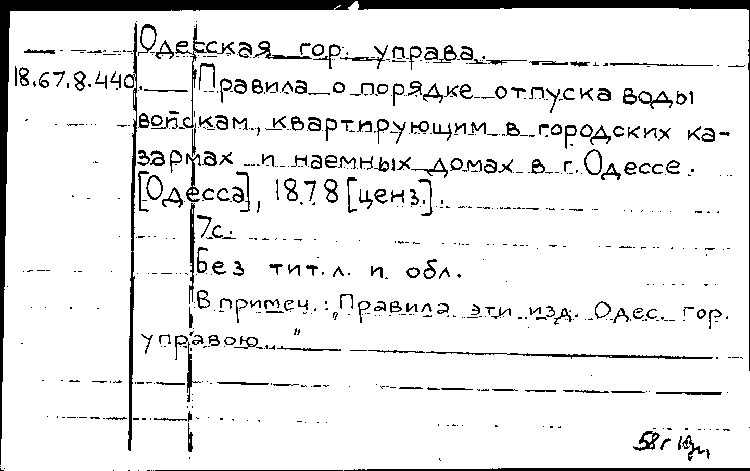 Одесская гор. управа.
18.67.8.440. Правила о порядке отпуска воды
войскам, квартирующим в городских ка-
зармах и наемных домах в г. Одессе.
[Одесса], 1878 [ценз.].
7с.
Без тит. л. и обл.
В примеч.: „Правила эти изд. Одес. гор.
управою..."
58г